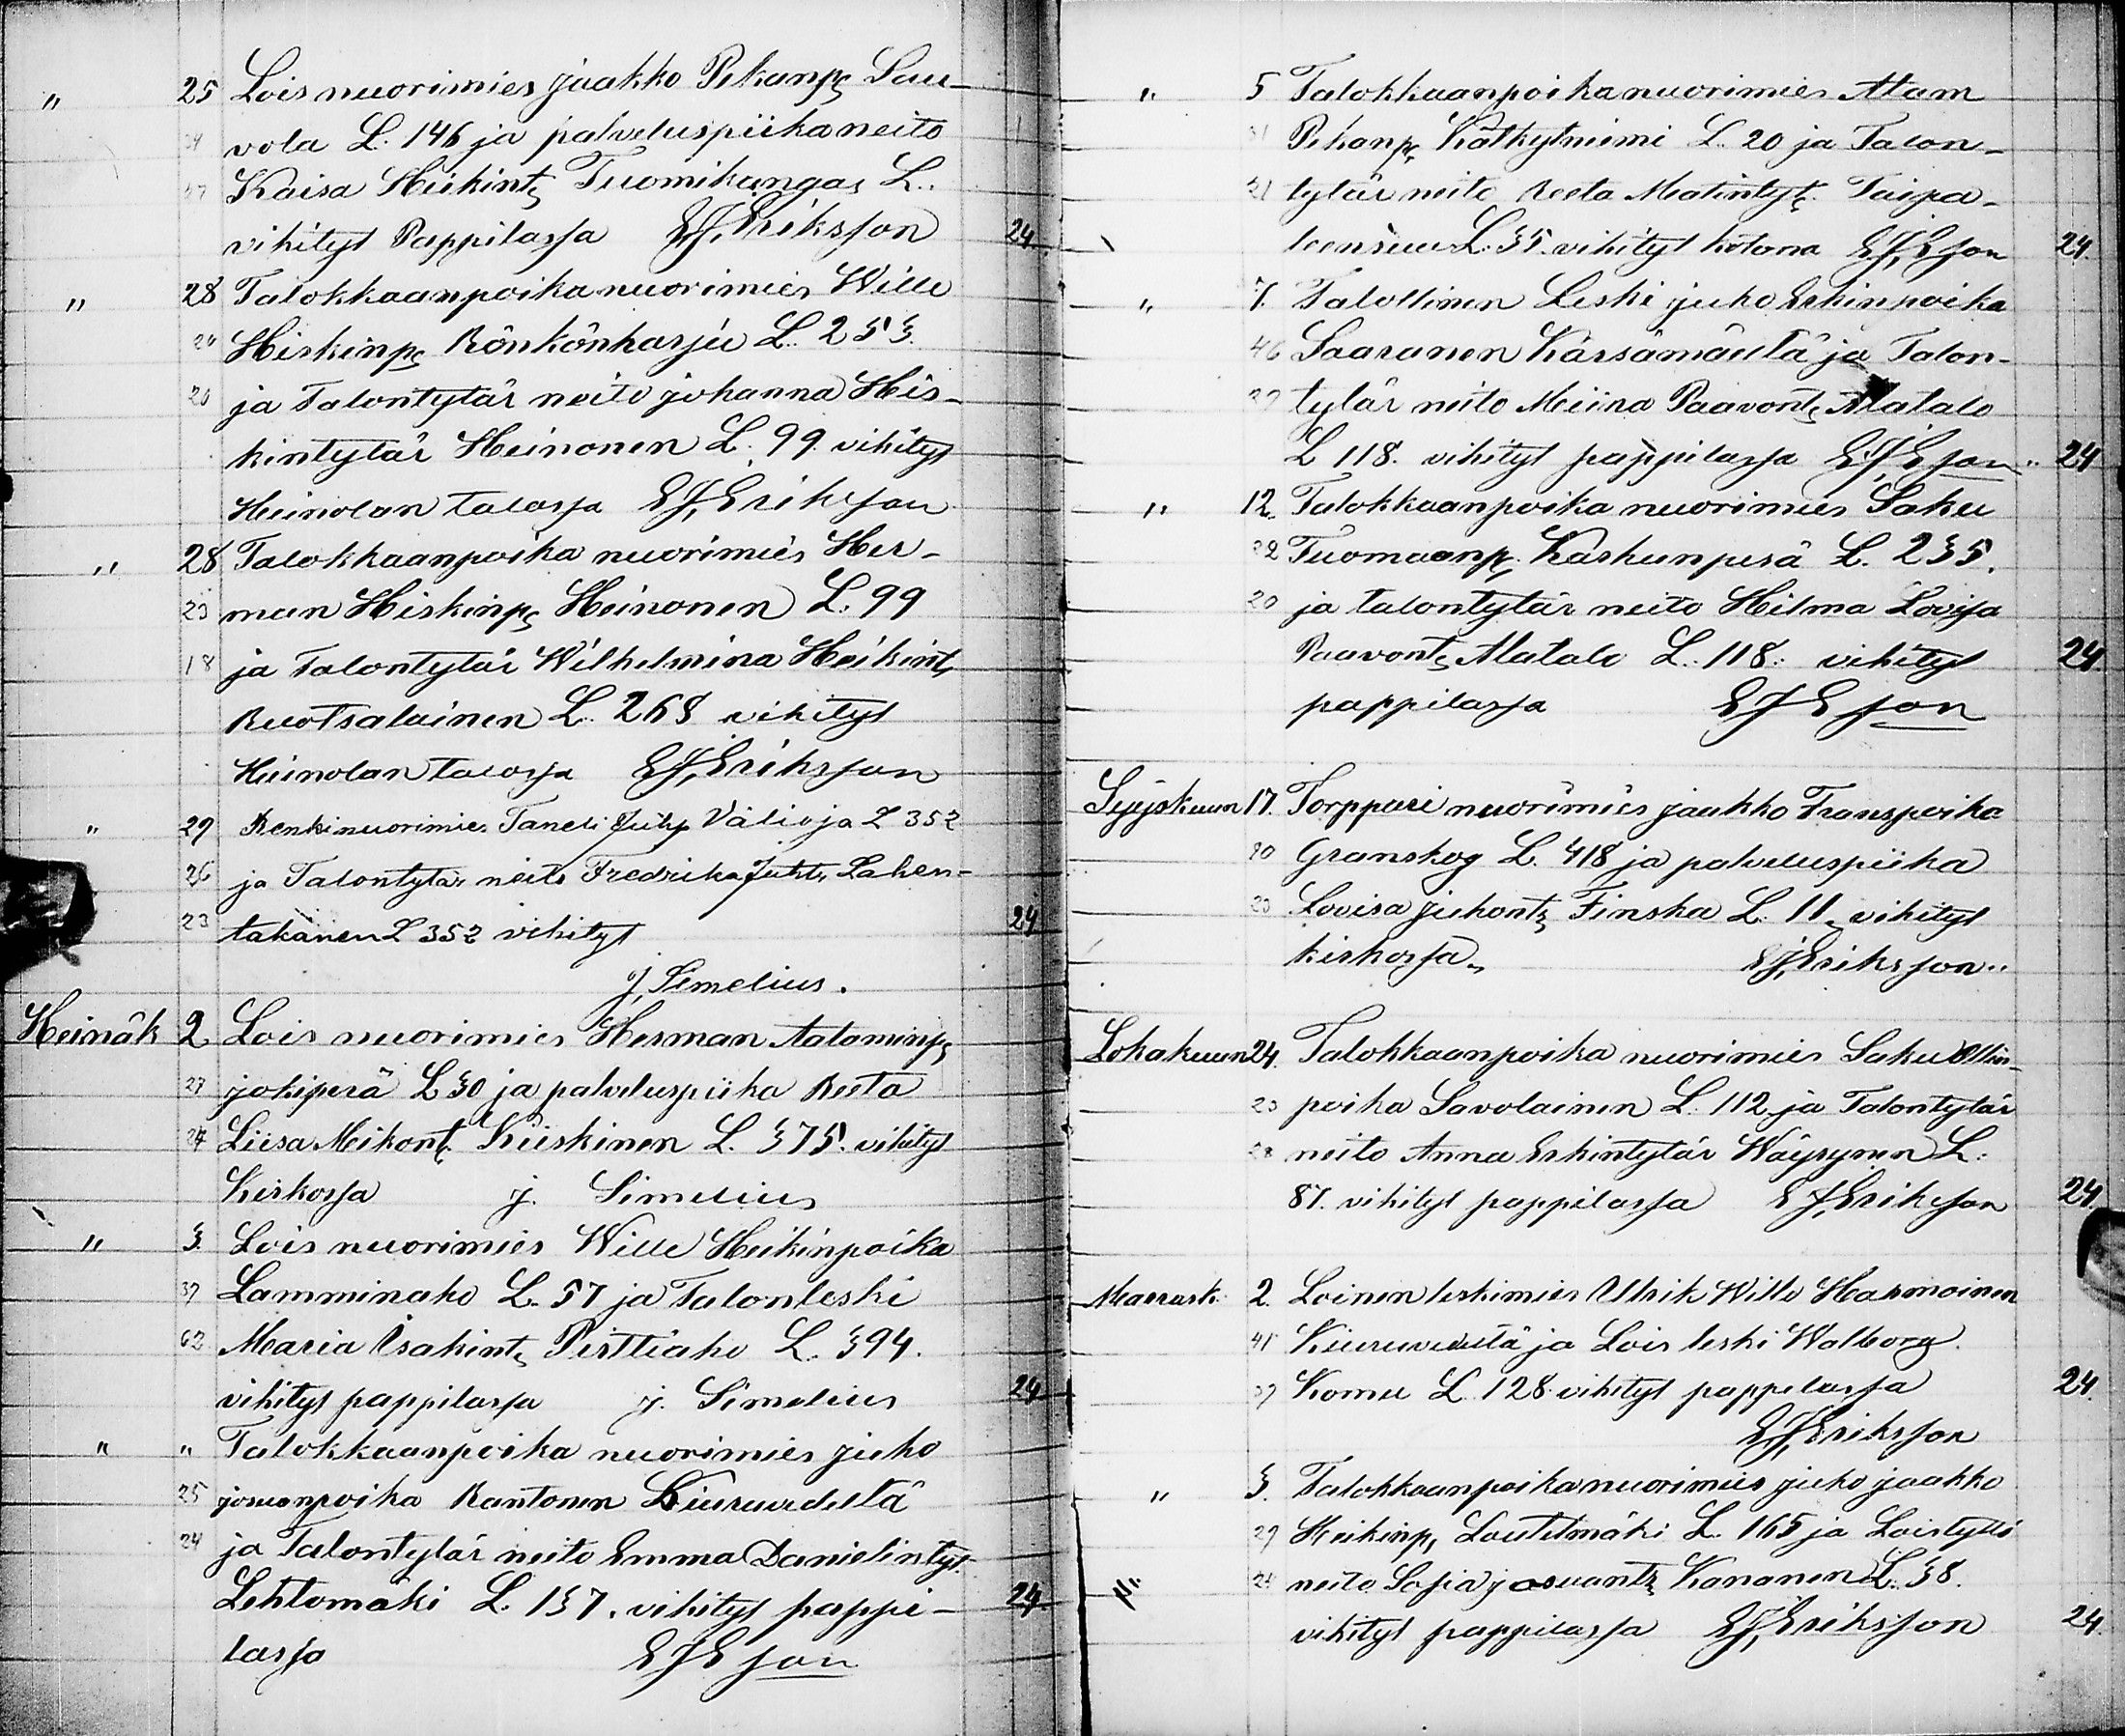 " 25 Lois nuorimies Jaakko Pekanp. Sau-
vola L. 146 ja palveluspiika neito
Kaisa Heikint. Tuomikangas L.
vihityt Pappilassa EJ. Eriksson 24
" 28 Talokkaanpoika nuorimies Wille
24 Hiskinp. Rönkönharju L. 253.
20 ja Talontytär neito Johanna His-
kintytär Heinonen L. 99. vihityt
Heinolan talossa EJ. Eriksson
" 28 Talokkaanpoika nuorimies Her-
23 man Hiskinp. Heinonen L. 99
18 ja Talontytär Wilhelmina Heikint.
Ruotsalainen L. 268 vihityt
Heinolan talossa EJ. Eriksson
" 29 Renki nuorimies Taneli Juhp. Välioja L 352
26 ja Talontytär neito Fredrika Juht. Lahen-
23 takanen L 352 vihityt 24
J. Simelius.
Heinäk 2 Lois nuorimies Herman Aataminp.
27 Jokiperä L 30 ja palveluspiika Reeta
24 Liisa Mikont. Kiiskinen L. 375. vihityt
Kirkossa J. Simelius
" 3. Lois nuorimies Wille Heikinpoika
37 Lamminaho L. 57 ja Talonleski
62 Maria Isakint. Pirttiaho L. 394.
vihityt pappilassa J. Simelius 24
" " Talokkaanpoika nuorimies Juho
25 Josuanpoika Rantonen Kiuruvedeltä
24 ja Talontytär neito Emma Danielintyt.
Lehtomäki L. 137. vihityt pappi- 24
lassa EJEson
" 5 Talokkaanpoika nuorimies Atam
31 Pekanp. Kätkytniemi L. 20 ja Talon-
21 tytär neito Reeta Matintyt. Taipa-
leensuu L. 35. vihityt kotona EJ, Eson 24.
" 7. Talollinen Leski Juho Erkinpoika
46 Saaranen Kärsämäeltä ja Talon-
tytär neito Miina Paavont. Alatalo
L 118. vihityt pappilassa EJ, Eson 24
" 12. Talokkaanpoika nuorimies Saku
22 Tuomaanp. Kaskunperä L. 235.
20 ja talontytär neito Hilma Lovisa
Paavont. Alatalo L. 118. vihityt 24.
pappilassa EJEson
Syyskuun 17. Torppari nuorimies Jaakko Franspoika
20 Granskog L. 418 ja palveluspiika
23 Lovisa Juhont. Finska L. 11. vihityt
kirkossa. EJ, Eriksson.
Lokakuun 24. Talokkaanpoika nuorimies Saku Ollin-
23 poika Savolainen L. 112 ja Talontytär
28 neito Anna Erkintytär Wäyrynen L.
87. vihityt pappilassa EJ, Eriksson 24.
Marrask. 2. Loinen leskimies Ulrik Wille Harmoinen
41 Kiuruvedeltä ja Lois leski Walborg
37 Komu L. 128. vihityt pappilassa 24.
EJ, Eriksson
" 3. Talokkaanpoika nuorimies Juho Jaakko
29 Heikinp. Loutelmäki L. 165 ja Loistyttö
24 neito Sofia Josuant. Kananen L. 38.
vihityt pappilassa EJ, Eriksson 24.